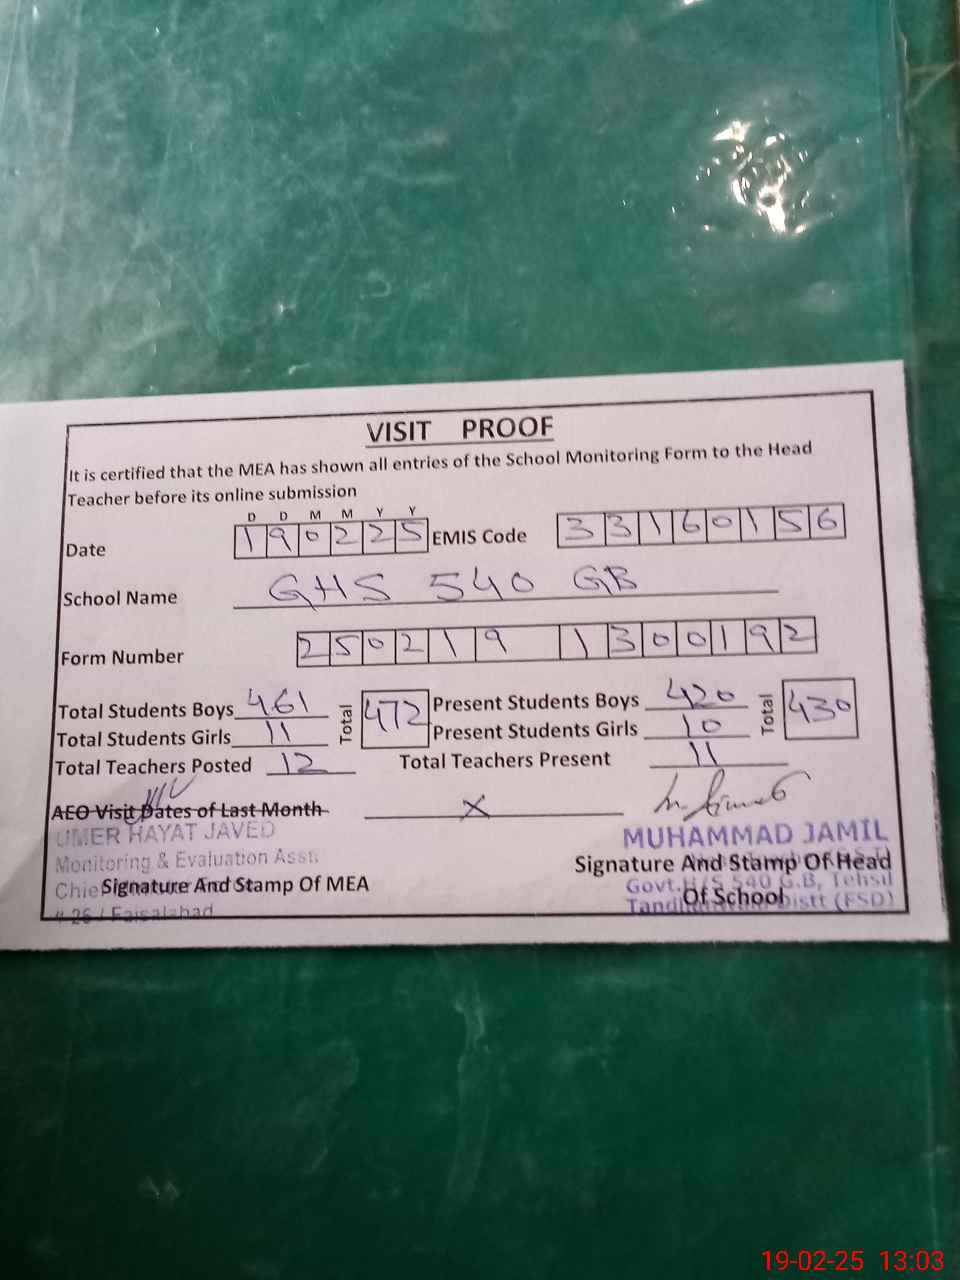 VISIT PROOF
It is certified that the MEA has shown all entries of the School Monitoring Form to the Head
Teacher before its online submission
D D M M Y Y
Date 190225 EMIS Code 33160156
School Name GHS 540 GB
Form Number 250219 1300192
Total Students Boys 461 Total 472 Present Students Boys 420 Total 430
Total Students Girls 11 Present Students Girls 10
Total Teachers Posted 12 Total Teachers Present 11
AEO Visit Dates of Last Month X
UMER HAYAT JAVED MUHAMMAD JAMIL
Monitoring & Evaluation Asst:
Signature And Stamp Of Head
Chie
Signature And Stamp Of MEA
Govt. H/S 540 G.B, Tehsil
Of School
# 26 / Faisalabad
Distt (FSD)
19-02-25 13:03